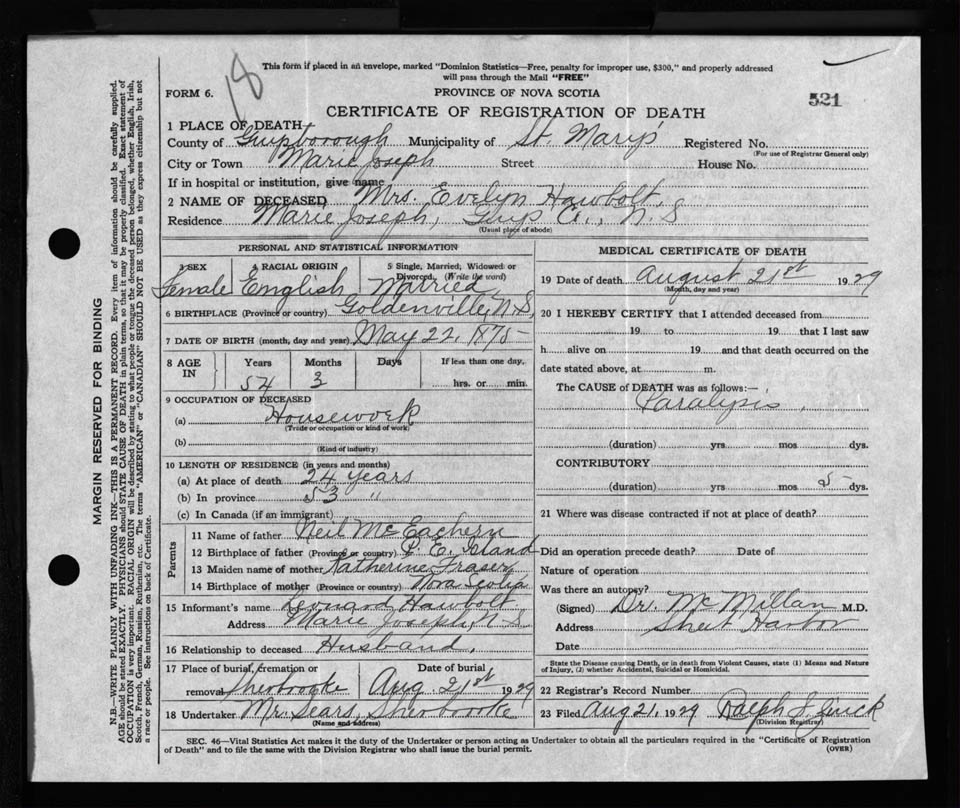 18
This form if placed in an envelope, marked "Dominion Statistics—Free, penalty for improper use, $300," and properly addressed
will pass through the Mail "FREE"
FORM 6.
PROVINCE OF NOVA SCOTIA
521
CERTIFICATE OF REGISTRATION OF DEATH
1 PLACE OF DEATH
County of Guysborough Municipality of St. Mary's Registered No.
(For use of Registrar General only)
City or Town Marie Joseph Street House No.
If in hospital or institution, give name
2 NAME OF DECEASED Mrs. Evelyn Hawbolt,
Residence Marie Joseph, Guys Co., N.S
(Usual place of abode)
PERSONAL AND STATISTICAL INFORMATION
3 SEX 4 RACIAL ORIGIN 5 Single, Married, Widowed or
Divorced. (Write the word)
Female English Married
6 BIRTHPLACE (Province or country) Goldenville, N.S,
7 DATE OF BIRTH (month, day and year) May 22, 1875
8 AGE IN Years Months Days If less than one day.
54 3 hrs. or min.
9 OCCUPATION OF DECEASED
(a) Housework
(Trade or occupation or kind of work)
(b)
(Kind of industry)
10 LENGTH OF RESIDENCE (in years and months)
(a) At place of death 24 years
(b) In province 53 "
(c) In Canada (if an immigrant)
Parents
11 Name of father Neil McEachern
12 Birthplace of father (Province or country) P. E. Island
13 Maiden name of mother Katherine Fraser
14 Birthplace of mother (Province or country) Nova Scotia
15 Informant's name Hawbolt
Address Marie Joseph, N.S.
16 Relationship to deceased Husband,
17 Place of burial, cremation or
removal Sherbrooke
Date of burial
Aug 21st 1929
18 Undertaker Mr. Sears, Sherbrooke
(Name and address)
MEDICAL CERTIFICATE OF DEATH
19 Date of death August 21st 1929
(Month, day and year)
20 I HEREBY CERTIFY that I attended deceased from
19 to 19 that I last saw
h alive on 19 and that death occurred on the
date stated above, at m.
The CAUSE of DEATH was as follows:—
Paralysis,
(duration) yrs mos dys.
CONTRIBUTORY
(duration) yrs mos 5 dys.
21 Where was disease contracted if not at place of death?
Did an operation precede death? Date of
Nature of operation
Was there an autopsy?
(Signed) Dr. McMillan M.D.
Address Sheet Harbor
Date
State the Disease causing Death, or in death from Violent Causes, state (1) Means and Nature
of Injury, (2) whether Accidental, Suicidal or Homicidal.
22 Registrar's Record Number
23 Filed Aug 21, 1929 Ralph J.
(Division Registrar)
SEC. 46—Vital Statistics Act makes it the duty of the Undertaker or person acting as Undertaker to obtain all the particulars required in the "Certificate of Registration
of Death" and to file the same with the Division Registrar who shall issue the burial permit.
(OVER)
MARGIN RESERVED FOR BINDING
N.B.—WRITE PLAINLY WITH UNFADING INK—THIS IS A PERMANENT RECORD. Every item of information should be carefully supplied.
AGE should be stated EXACTLY. PHYSICIANS should STATE CAUSE OF DEATH in plain terms, so that it may be properly classified. Exact statement of
OCCUPATION is very important. RACIAL ORIGIN will be described by stating to what people or tongue the deceased person belonged, whether English, Irish,
Scotch, French, German, Russian, Ruthenian, etc. The terms "AMERICAN" or "CANADIAN" SHOULD NOT BE USED as they express citizenship but not
a race or people. See instructions on back of Certificate.